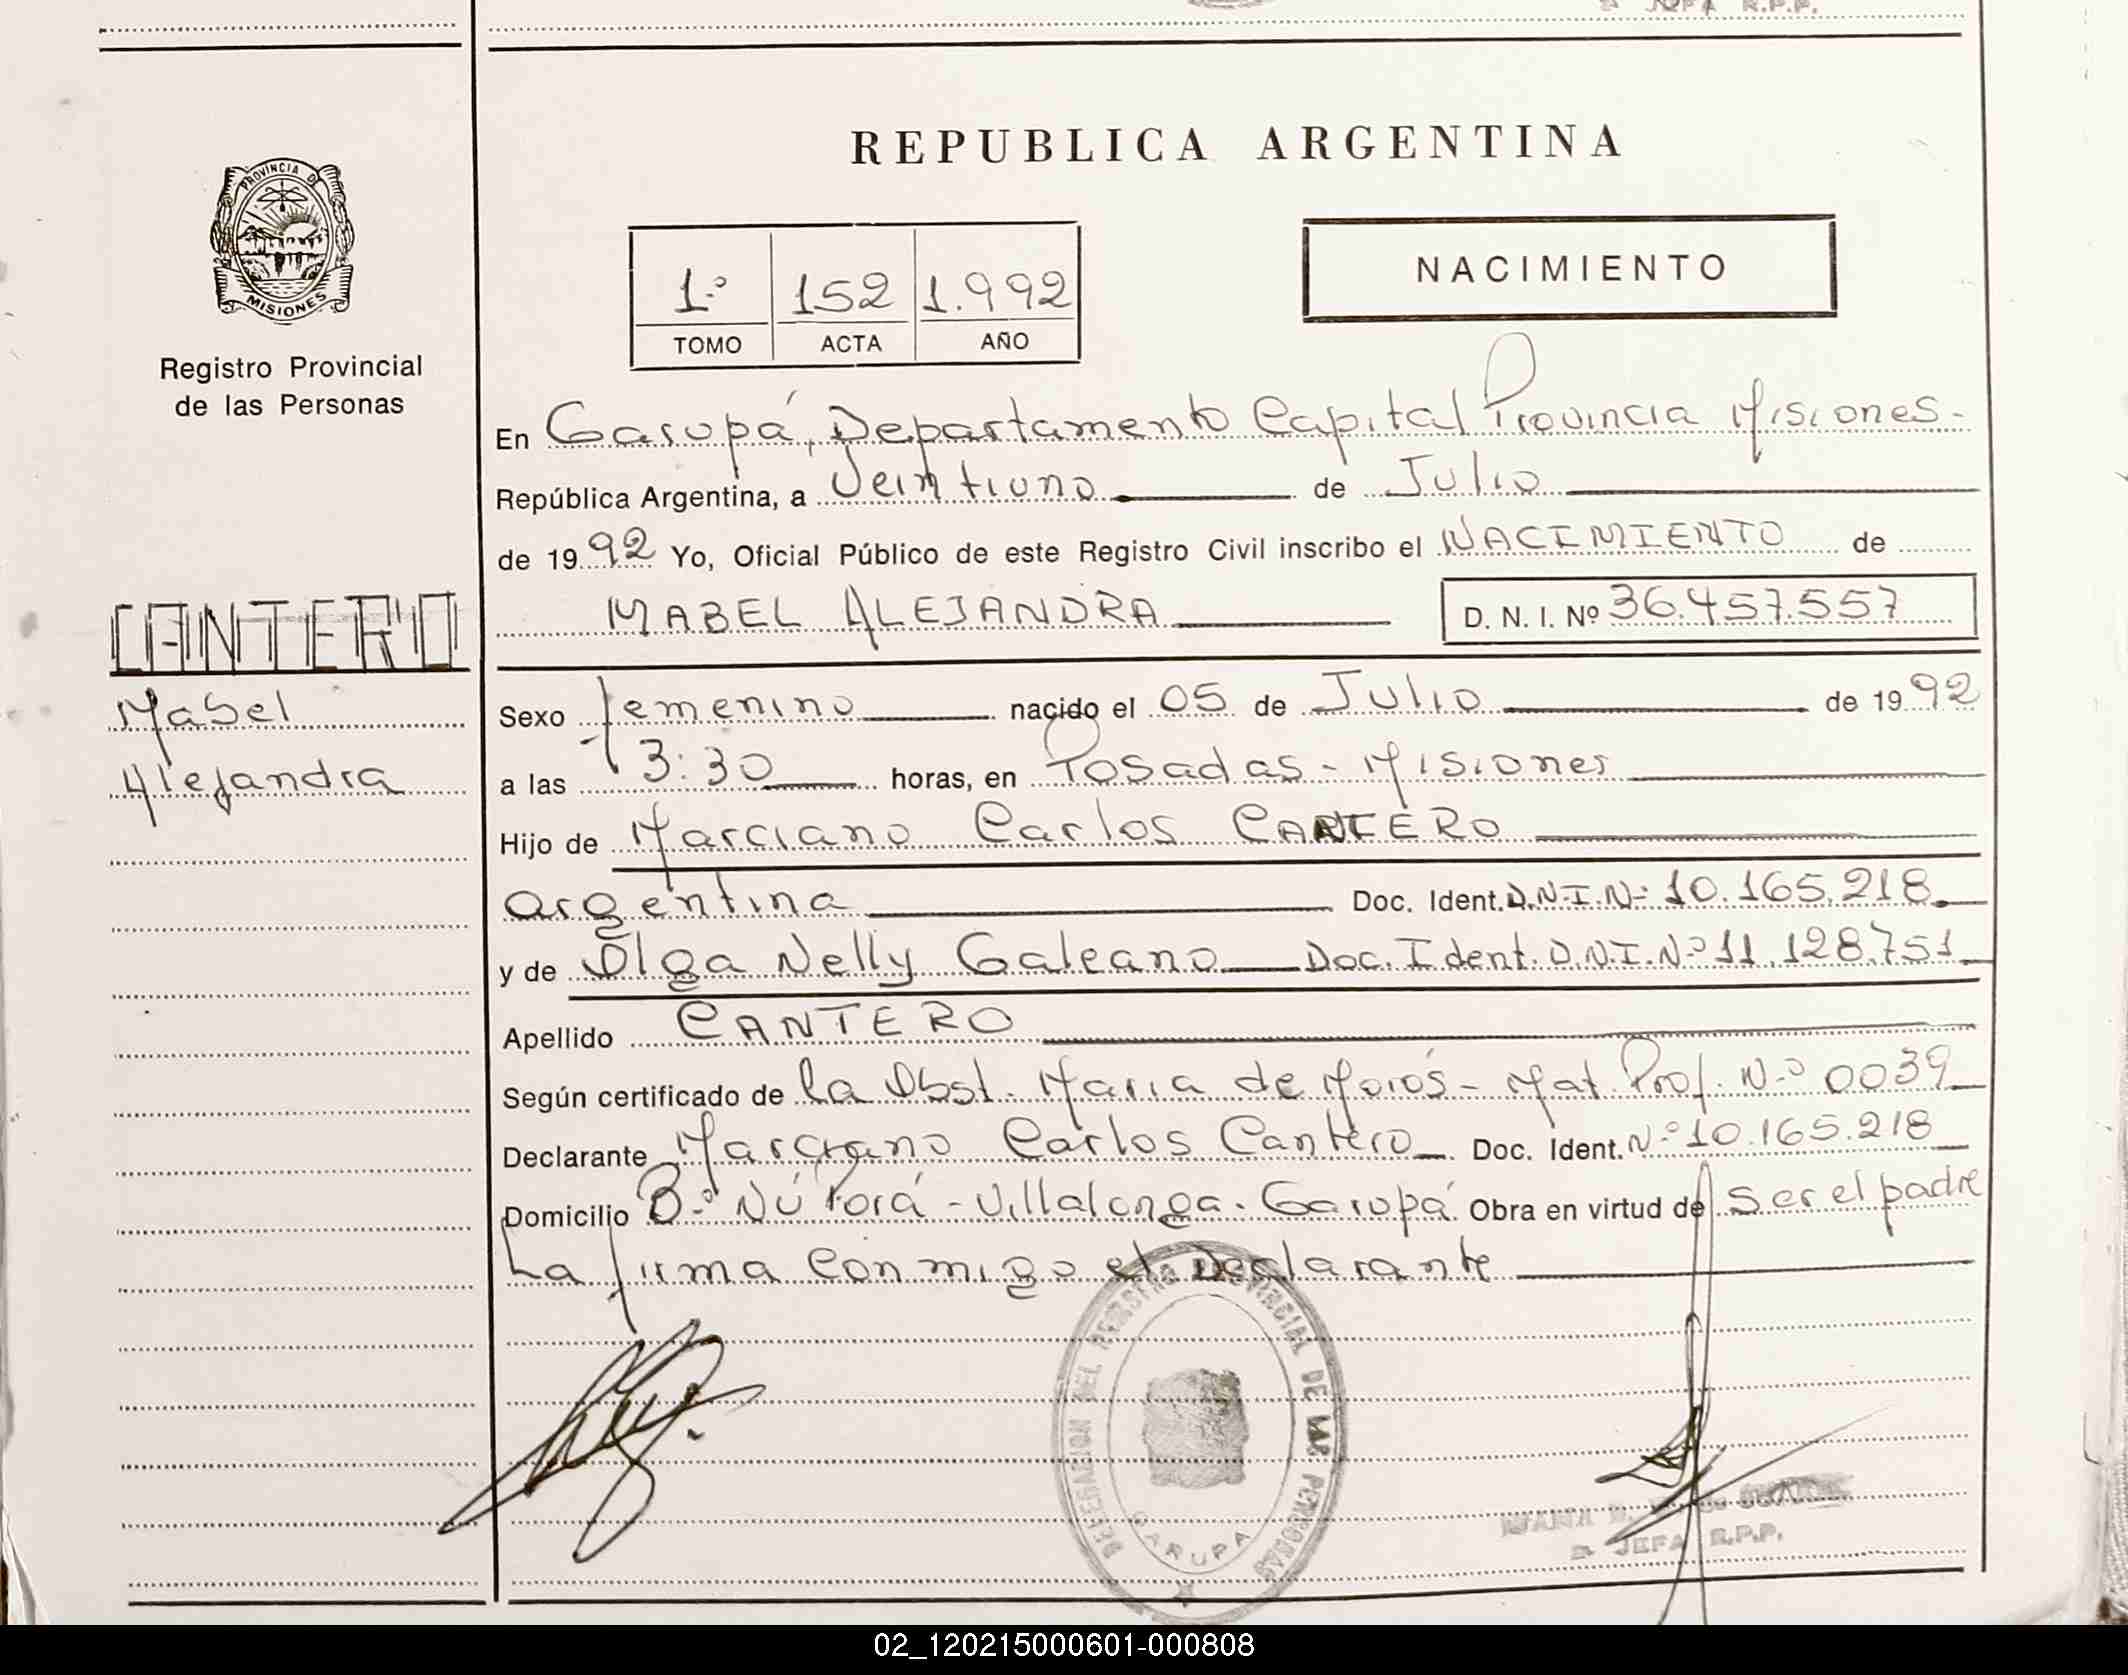 JEFA R.P.P.
PROVINCIA DE
MISIONES
Registro Provincial
de las Personas
CANTERO
Mabel
Alejandra
REPUBLICA ARGENTINA
1º 152 1.992
TOMO ACTA AÑO
NACIMIENTO
En Garupá, Departamento Capital Provincia Misiones-
República Argentina, a Veintiuno de Julio
de 1992 Yo, Oficial Público de este Registro Civil inscribo el NACIMIENTO de
MABEL ALEJANDRA D. N. I. Nº 36.457.557
Sexo femenino nacido el 05 de Julio de 1992
a las 13:30 horas, en Posadas - Misiones
Hijo de Marciano Carlos CANTERO
argentina Doc. Ident. D.N.I.Nº 10.165.218
y de Olga Nelly Galeano Doc. Ident. D.N.I.Nº 11.128.751
Apellido CANTERO
Según certificado de la Obst. Maria de Moros - Mat. Prof. Nº 0039
Declarante Marciano Carlos Cantero Doc. Ident. Nº 10.165.218
Domicilio Bº Ñú Porá - Villalonga - Garupá Obra en virtud de ser el padre
La firma conmigo el Declarante
DELEGACION DEL REGISTRO PROVINCIAL DE LAS PERSONAS
GARUPA
MARIA
JEFA R.P.P.
02_120215000601-000808